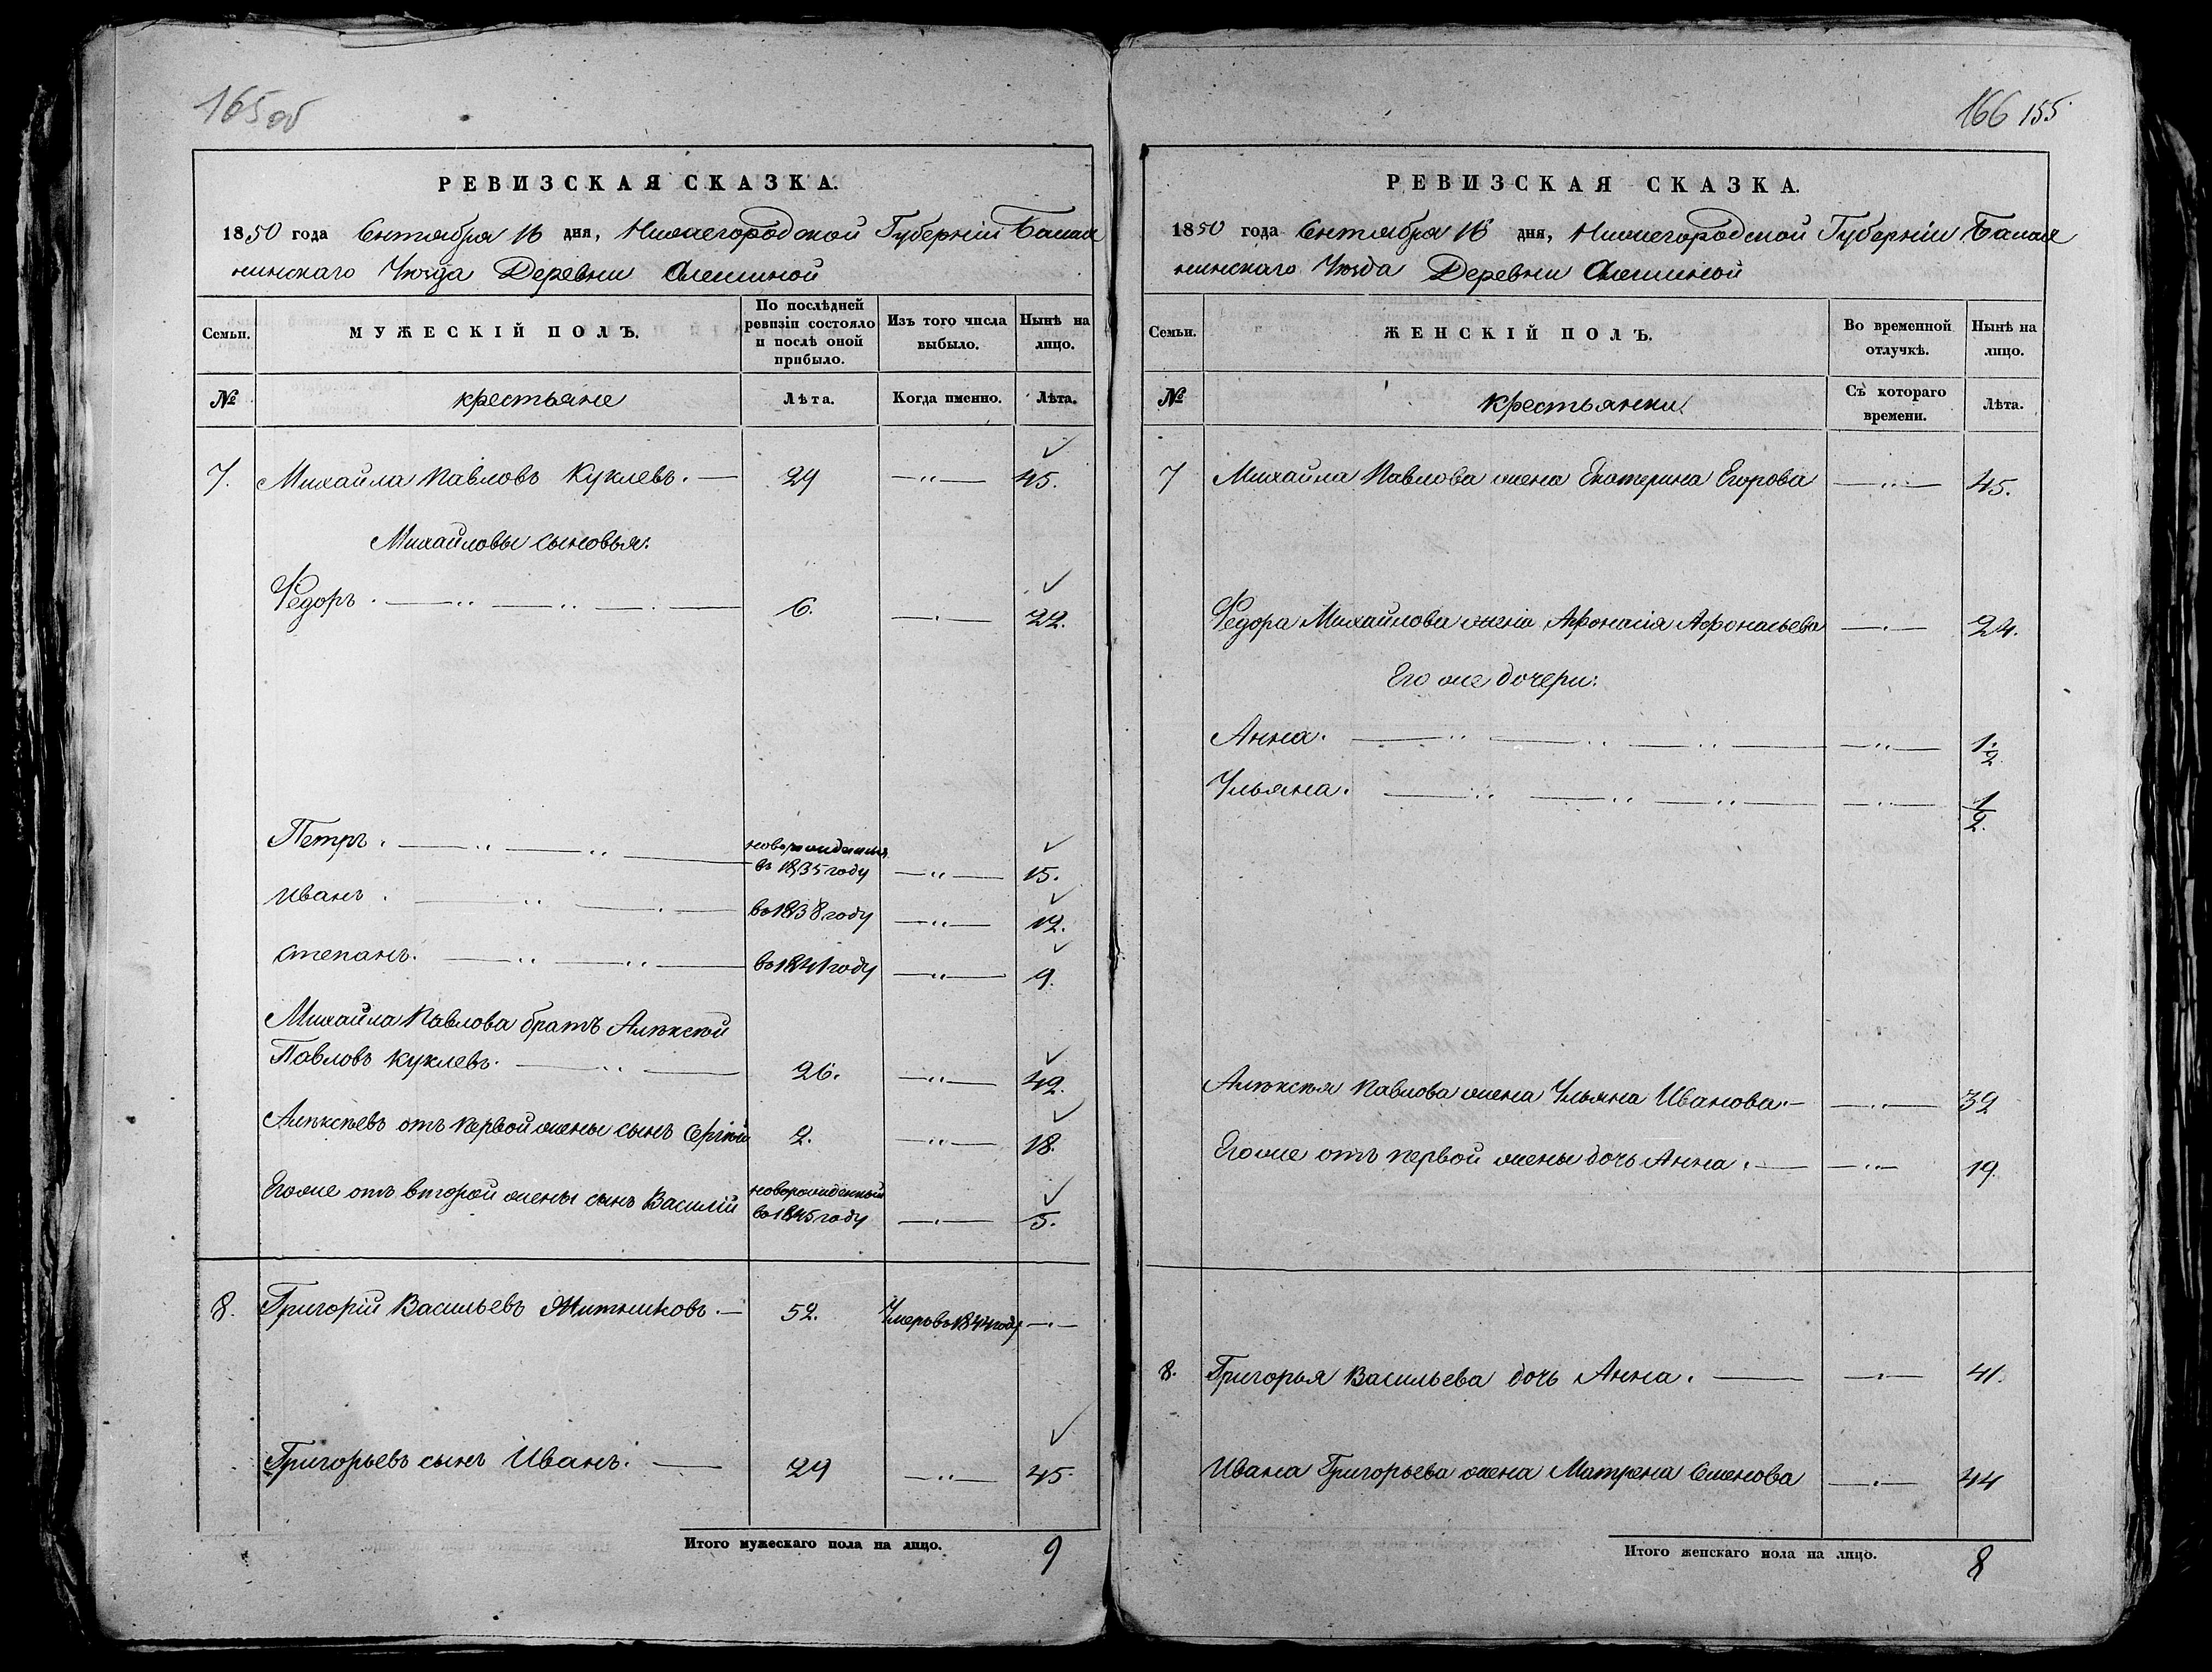 165об
РЕВИЗСКАЯ СКАЗКА.
1850 года Сентября 16 дня, Нижегородской Губерніи Балах
нинскаго Уѣзда Деревни Алешиной
Семьи.
МУЖЕСКІЙ ПОЛЪ.
По послѣдней
ревизіи состояло
и послѣ оной
прибыло.
Изъ того числа
выбыло.
Нынѣ на
лицо.
№
крестьяне
Лѣта.
Когда именно.
Лѣта.
7. Михайла Павловъ Куклевъ. — 29 —"— 45.
Михайловы сыновья:
Федоръ. 6. —"— 22.
Петръ. новорожденный
въ 1835 году —"— 15.
Иванъ. въ 1838 году —"— 12.
Степанъ. въ 1841 году —"— 9.
Михайла Павлова братъ Алѣксѣй
Павловъ Куклевъ. 26. —"— 42.
Алѣксѣевъ отъ первой жены сынъ Сергѣй 2. —"— 18.
Его же отъ второй жены сынъ Василій новорожденный
въ 1845 году —"— 5.
8. Григорій Васильевъ Житниковъ. — 52. Умеръ въ 1844 году —"—
Григорьевъ сынъ Иванъ. — 29 —"— 45.
Итого мужескаго пола на лицо. 9
166 155
РЕВИЗСКАЯ СКАЗКА.
1850 года Сентября 16 дня, Нижегородской Губерніи Балах
нинскаго Уѣзда Деревни Алешиной
Семьи.
ЖЕНСКІЙ ПОЛЪ.
Во временной
отлучкѣ.
Нынѣ на
лицо.
№
крестьянки
Съ котораго
времени.
Лѣта.
7 Михайла Павлова жена Екатерина Егорова —"— 45.
Федора Михайлова жена Афонасія Афонасьева —"— 24.
Его же дочери:
Анна. —"— 1½
Ульяна. —"— ½
Алѣксѣя Павлова жена Ульяна Иванова. — —"— 32
Его же отъ первой жены дочь Анна. — —"— 19.
8. Григорья Васильева дочь Анна. — —"— 41.
Ивана Григорьева жена Матрена Семенова —"— 44
Итого женскаго пола на лицо. 8